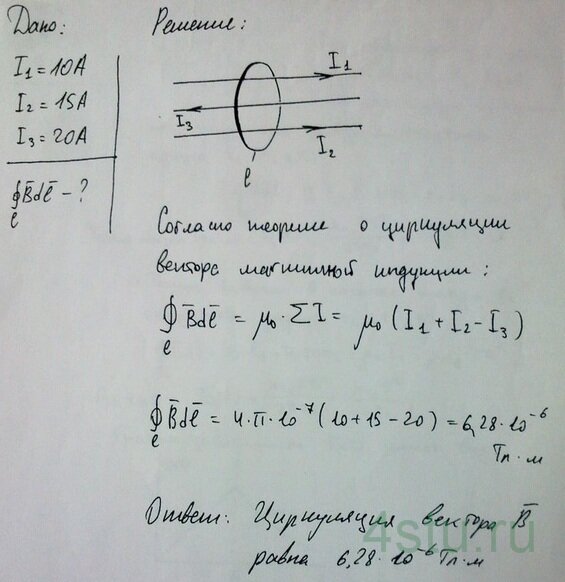 Дано:
I₁ = 10А
I₂ = 15А
I₃ = 20А
∮ₗ B̄dℓ̄ – ?
Решение:
I₁
I₃
I₂
ℓ
Согласно теореме о циркуляции
вектора магнитной индукции:
∮ₗ B̄dℓ̄ = μ₀ · ΣI = μ₀ (I₁ + I₂ – I₃)
∮ₗ B̄dℓ̄ = 4·π·10⁻⁷(10+15–20) = 6,28·10⁻⁶
Тл·м
Ответ: Циркуляция вектора B̄
равна 6,28·10⁻⁶ Тл·м
4stu.ru